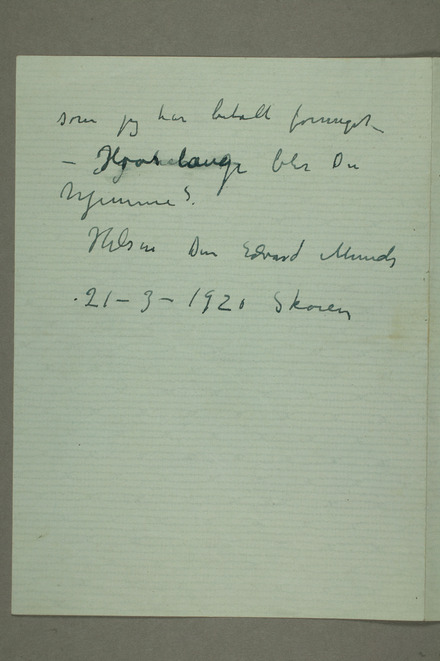 som jeg har betalt forsinget –
– Hvor længe blir Du
hjemme?
Hilsen Din Edvard Munch
21–3–1920 Skøien